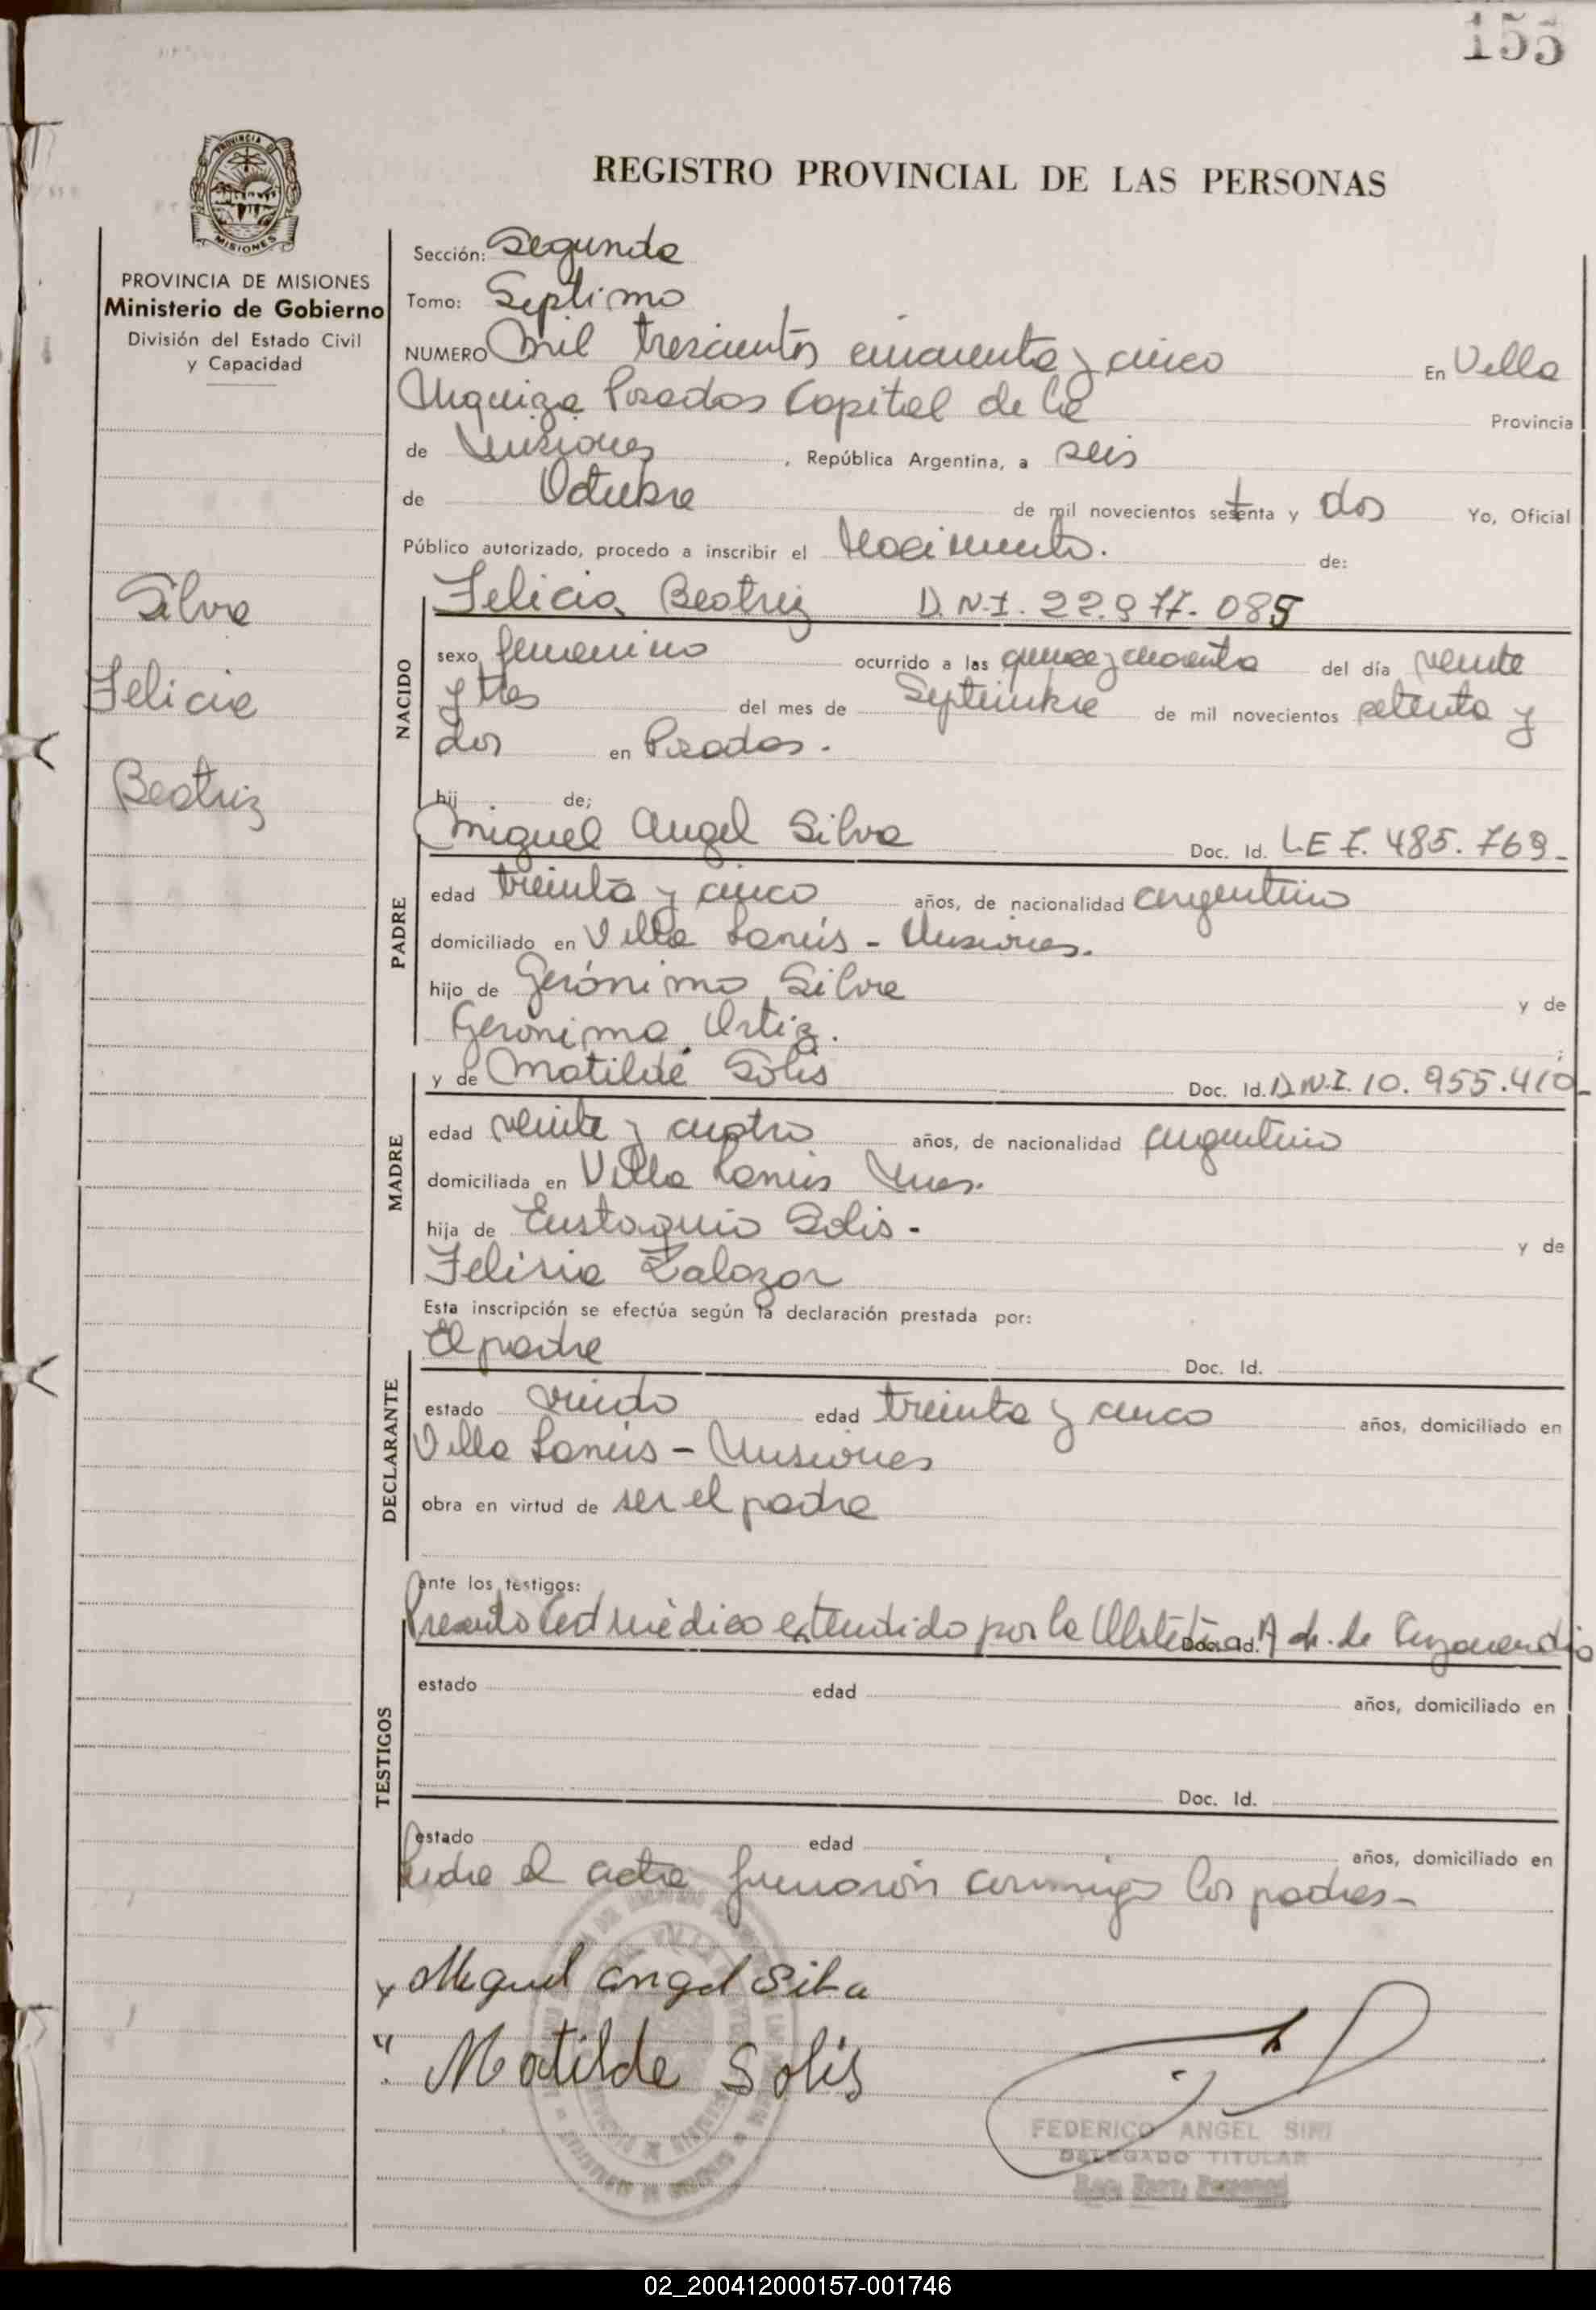 155
PROVINCIA DE MISIONES
Ministerio de Gobierno
División del Estado Civil
y Capacidad
Silva
Felicia
Beatriz
REGISTRO PROVINCIAL DE LAS PERSONAS
Sección: Segunda
Tomo: Septimo
NUMERO Mil trescientos cincuenta y cinco En Villa
Urquiza Posadas Capital de la Provincia
de Misiones, República Argentina, a seis
de Octubre de mil novecientos setenta y dos Yo, Oficial
Público autorizado, procedo a inscribir el Nacimiento. de:
NACIDO
Felicia Beatriz D.N.I. 22.977.085
sexo femenino ocurrido a las quince y cuarenta del día veinte
y tres del mes de Septiembre de mil novecientos setenta y
dos en Posadas.
hij de;
PADRE
Miguel Angel Silva Doc. Id. L E 7.485.769-
edad treinta y cinco años, de nacionalidad argentino
domiciliado en Villa Lanús - Misiones.
hijo de Gerónimo Silva y de
Geronima Ortiz. ;
MADRE
y de Matilde Solis Doc. Id. D.N.I. 10.955.410-
edad veinte y cuatro años, de nacionalidad argentina
domiciliada en Villa Lanús Mnes.
hija de Eustaquio Solis - y de
Felisia Zalazar
Esta inscripción se efectúa según la declaración prestada por:
DECLARANTE
El padre Doc. Id.
estado viudo edad treinta y cinco años, domiciliado en
Villa Lanús - Misiones
obra en virtud de ser el padre
ante los testigos:
TESTIGOS
Presento Cert médico extendido por la Obstétra Doc. Id. A de
estado edad años, domiciliado en
Doc. Id.
estado edad años, domiciliado en
Leida el acta firmarón conmigo los padres-
x Miguel angel Silva
" Matilde Solis
FEDERICO ANGEL SIRI
DELEGADO TITULAR
02_200412000157-001746